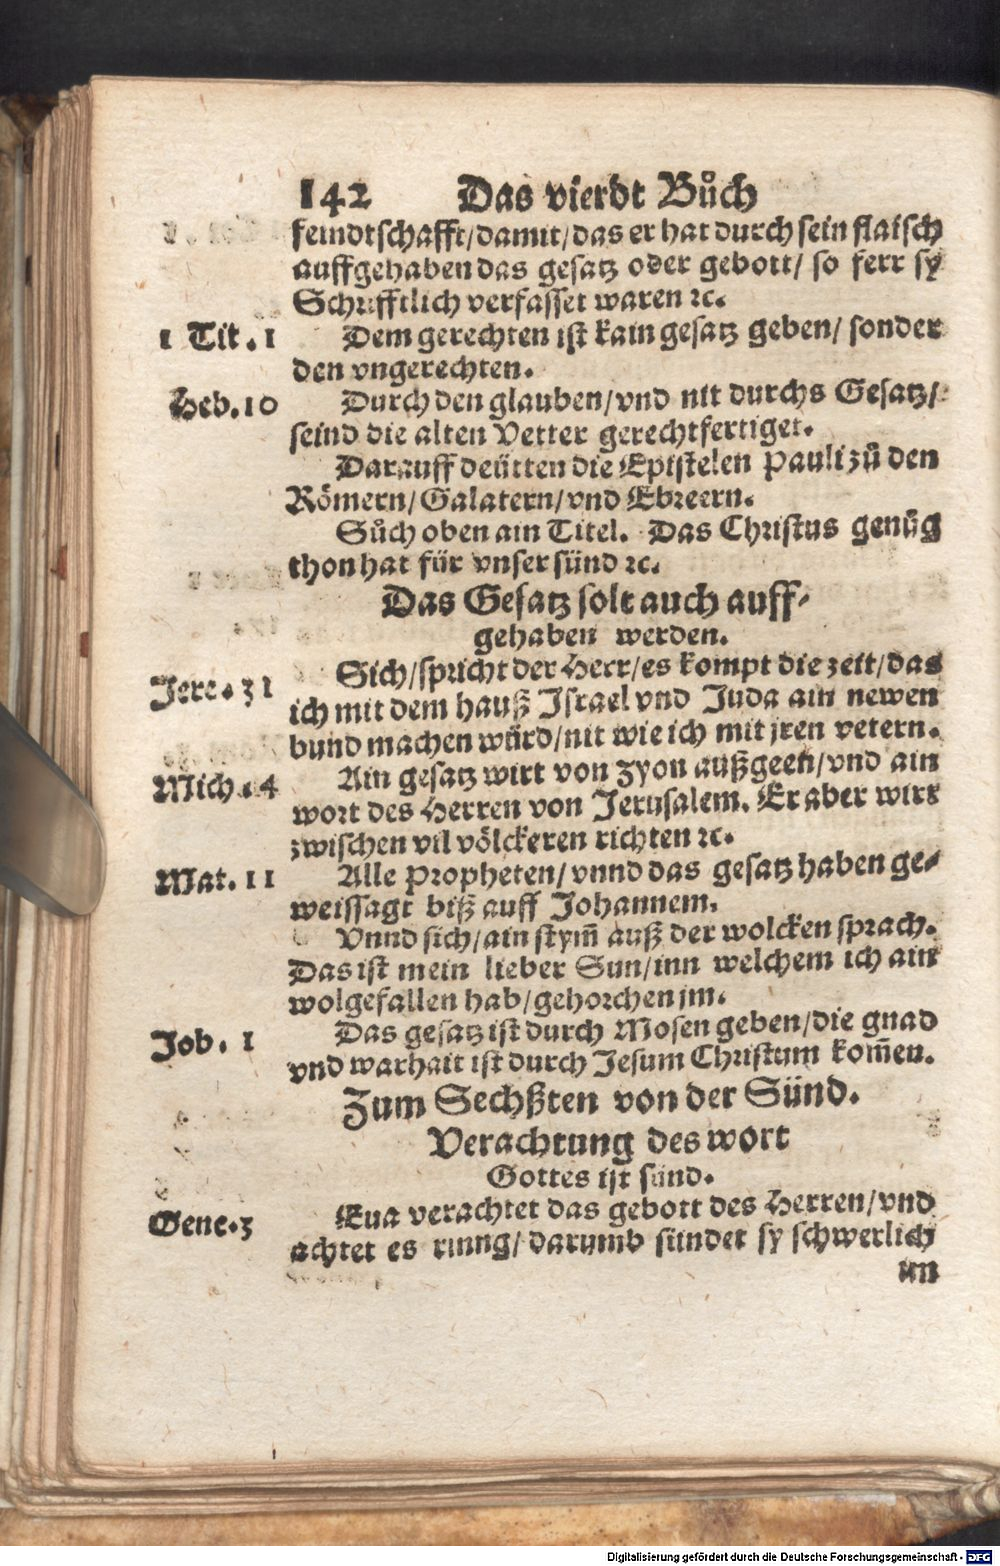 142 Das vierdt Bůch
feindtschafft/damit/das er hat durch sein flaisch
auffgehaben das gesatz oder gebott/ so ferr sy
Schrifftlich verfasset waren ꝛc.
1 Tit. 1 Dem gerechten ist kain gesatz geben/ sonder
den vngerechten.
Heb. 10 Durch den glauben/vnd nit durchs Gesatz/
seind die alten Vetter gerechtfertiget.
Darauff deütten die Epistelen Pauli zů den
Römern/Galatern/vnd Ebreern.
Sůch oben am Titel. Das Christus genůg
thon hat für vnser sünd ꝛc.
Das Gesatz solt auch auff-
gehaben werden.
Jere. 31 Sich/spricht der Herr/es kompt die zeit/das
ich mit dem hauß Israel vnd Juda ain newen
bund machen würd/nit wie ich mit jren vetern.
Mich. 4 Ain gesatz wirt von Zyon außgeen/vnd ain
wort des Herren von Jerusalem. Er aber wirt
zwischen vil völckeren richten ꝛc.
Mat. 11 Alle Propheten/vnnd das gesatz haben ge-
weissagt biß auff Johannem.
Vnnd sich/ain stym̄ auß der wolcken sprach.
Das ist mein lieber Sun/inn welchem ich ain
wolgefallen hab/gehorchen jm.
Joh. 1 Das gesatz ist durch Mosen geben/die gnad
vnd warhait ist durch Jesum Christum kom̄en.
Zum Sechßten von der Sünd.
Verachtung des wort
Gottes ist sünd.
Gene. 3 Eua verachtet das gebott des Herren/vnd
achtet es rinng/darumb sündet sy schwerlich
im
Digitalisierung gefördert durch die Deutsche Forschungsgemeinschaft - DFG